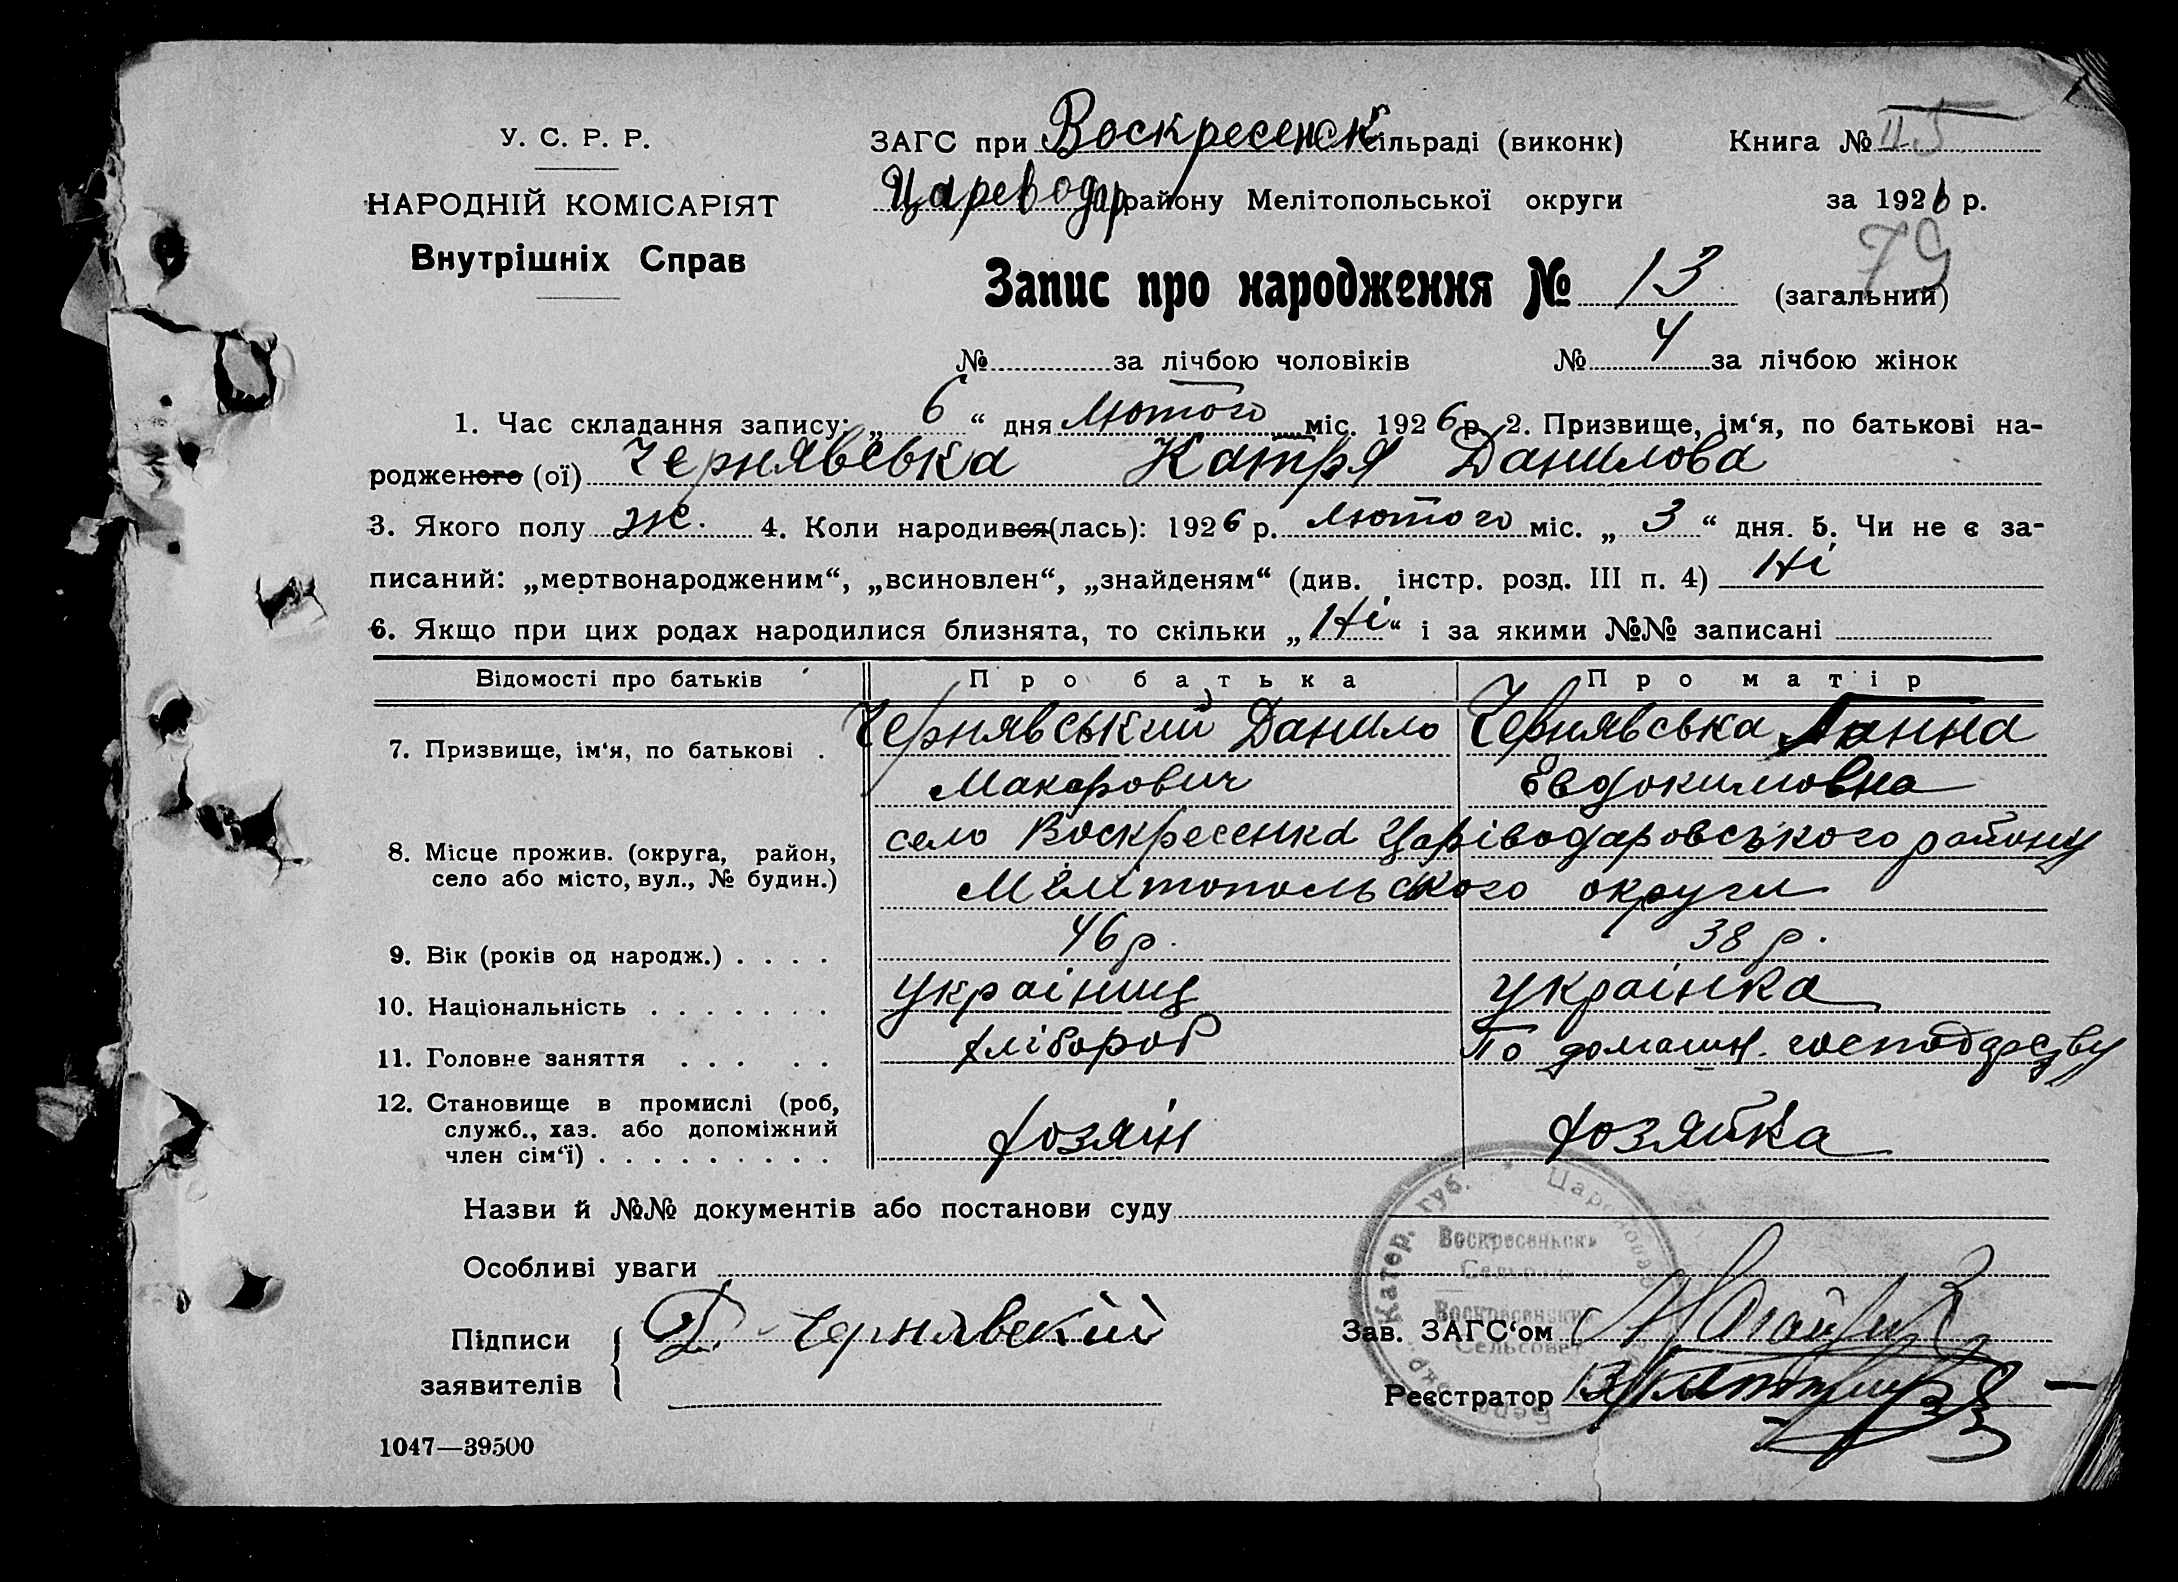 У. С. Р. Р.
НАРОДНІЙ КОМІСАРІЯТ
Внутрішніх Справ
ЗАГС при Воскресенск сільраді (виконк)
Цареводар району Мелітопольської округи
Книга №
за 1926 р.
79
Запис про народження № 13 (загальний)
№ за лічбою чоловіків № 4 за лічбою жінок
1. Час складання запису: „ 6 “ дня Лютого міс. 1926 р. 2. Призвище, ім‘я, по батькові на-
родженого (ої) Чернявська Катря Данилова
3. Якого полу ж. 4. Коли народився(лась): 1926 р. Лютого міс. „ 3 “ дня. 5. Чи не є за-
писаний: „мертвонародженим“, „всиновлен“, „знайденям“ (див. інстр. розд. III п. 4) Ні
6. Якщо при цих родах народилися близнята, то скільки „ Ні “ і за якими №№ записані
Відомості про батьків Про батька Про матір
7. Призвище, ім‘я, по батькові . Чернявський Данило Чернявська Ганна
Макарович Евдокимовна
8. Місце прожив. (округа, район,
село або місто, вул., № будин.)
село Воскресенка Царіводаровського району
Мелітопольського округи
9. Вік (років од народж.) . . . . 46 р. 38 р.
10. Національність . . . . . . . україниц українка
11. Головне заняття . . . . . хлібороб По домашн. господарству
12. Становище в промислі (роб,
служб., хаз. або допоміжний
член сім‘ї) . . . . . . . . . хозяін хозяйка
Назви й №№ документів або постанови суду
Особливі уваги
Підписи
заявителів
Д. Чернявский
Зав. ЗАГС‘ом
Реєстратор
Катер. губ.
Воскресенск
Воскресенский
Сельсовет
1047—39500